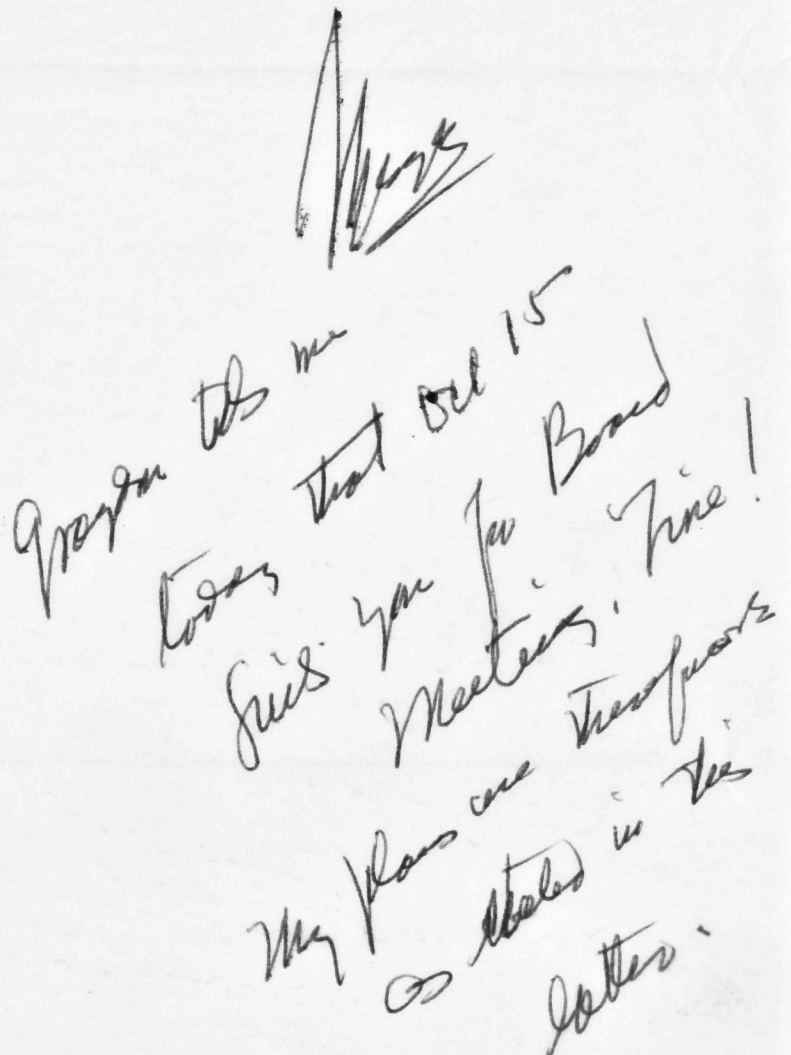 Graydon tells me
today that Oct 15
suits you for Board
Meeting. Fine!
My plans are therefore
as stated in this
letter.